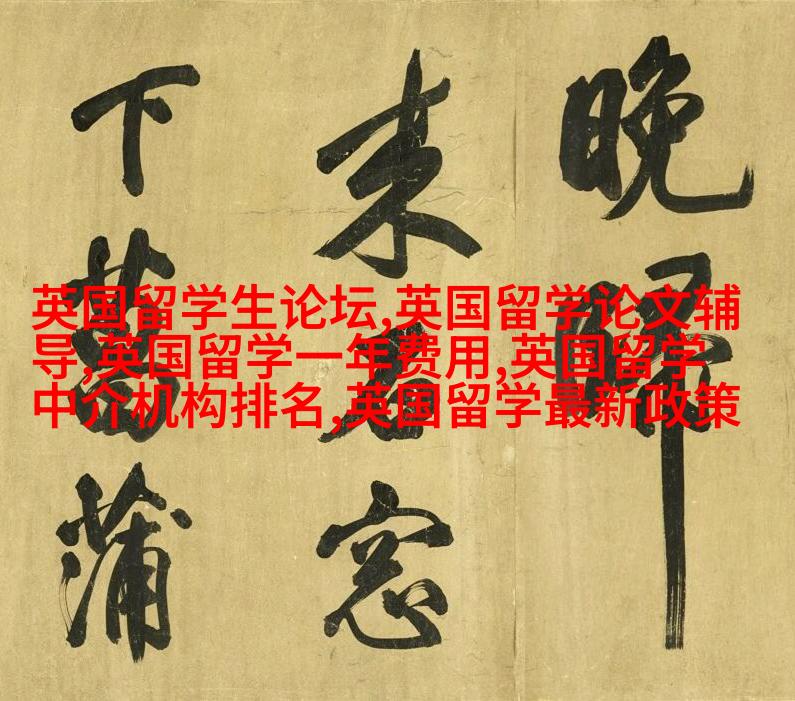 英国留学生论坛,英国留学论文辅
导,英国留学一年费用,英国留学
中介机构排名,英国留学最新政策
晚歸
来窓
下菖蒲